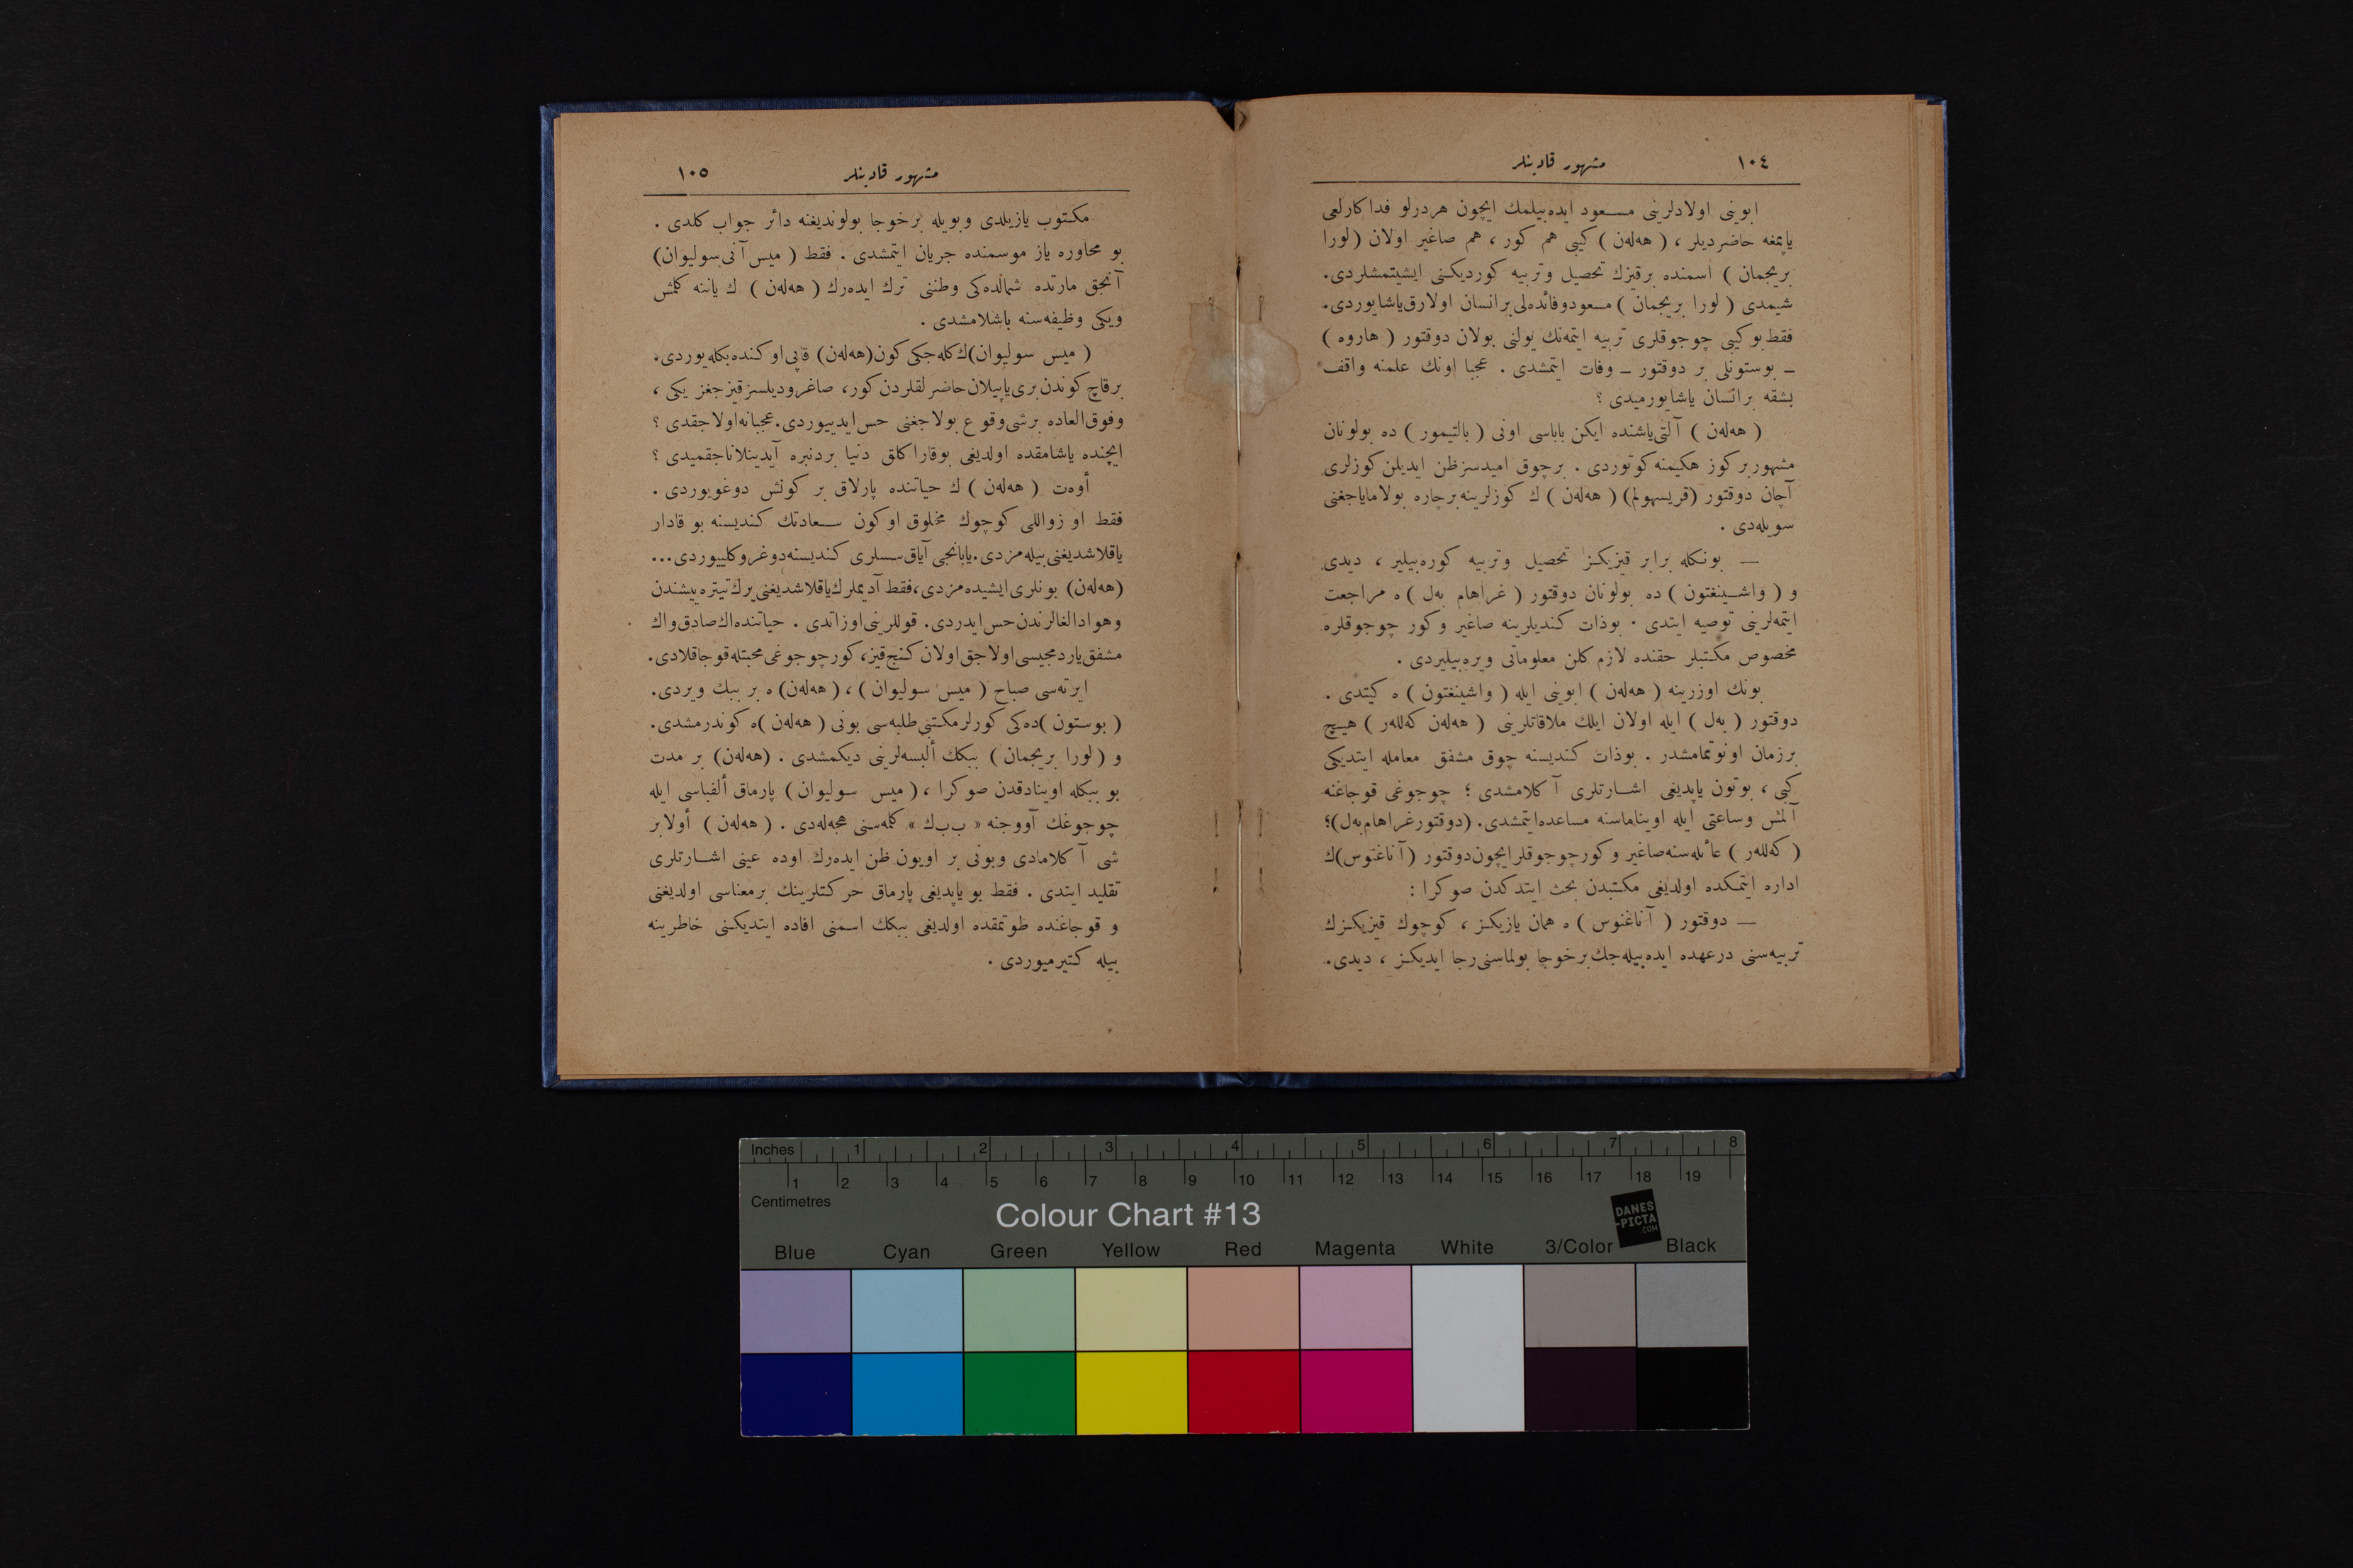 ١٠٤ مشهور قادینلر
ابوینی اولادلرینی مسعود ایده‌بیلمك ایچون هردرلو فداكارلغی
یاپمغه حاضردیلر ، ( هه‌له‌ن ) كیبی هم كور ، هم صاغیر اولان ( لورا
بریجمان ) اسمنده برقیزك تحصیل وتربیه كوردیكنی ایشیتمشلردی.
شیمدی ( لورا بریجمان ) مسعودوفائده‌لی برانسان اولارق‌یاشایوردی.
فقط بوكیبی چوجوقلری تربیه ایتمه‌نك یولنی بولان دوقتور ( هاروه )
ـ بوستونلی بر دوقتور ـ وفات ایتمشدی . عجبا اونك علمنه واقف
بشقه برانسان یاشایورمیدی ؟
( هه‌له‌ن ) آلتی‌یاشنده ایكن باباسی اونی ( بالتیمور ) ده بولونان
مشهور بر كوز هكیمنه كوتوردی . برچوق امیدسزظن ایدیلن كوزلری
آچان دوقتور (قریسهولم) ( هه‌له‌ن ) ك كوزلرینه برچاره بولامایاجغنی
سویله‌دی .
— بونكله برابر قیزیكز تحصیل وتربیه كوره‌بیلیر ، دیدی
و ( واشینغتون ) ده بولونان دوقتور ( غراهام به‌ل ) ه مراجعت
ایتمه‌لرینی توصیه ایتدی . بوذات كندیلرینه صاغیر وكور چوجوقلره
مخصوص مكتبلر حقنده لازم كلن معلوماتی ویره‌بیلیردی .
بونك اوزرینه ( هه‌له‌ن ) ابوینی ایله ( واشینغتون ) ه كیتدی .
دوقتور ( به‌ل ) ایله اولان ایلك ملاقاتلرینی ( هه‌له‌ن كه‌لله‌ر ) هیچ
برزمان اونوتمامشدر . بوذات كندیسنه چوق مشفق معامله ایتدیكی
كبی ، بوتون یاپدیغی اشارتلری آكلامشدی ؛ چوجوغی قوجاغنه
آلمش وساعتی ایله اویناماسنه مساعده‌ایتمشدی. (دوقتورغراهام‌به‌ل)؛
( كه‌لله‌ر ) عائله‌سنه‌صاغیر وكورچوجوقلرایچون‌دوقتور (آناغنوس)ك
اداره ایتمكده اولدیغی مكتبدن بحث ایتدكدن صوكرا :
— دوقتور ( آناغنوس ) ه همان یازیكز ، كوچوك قیزیكزك
تربیه‌سنی درعهده ایده‌بیله‌جك‌برخوجا بولماسنی‌رجا ایدیكز ، دیدی.
مشهور قادینلر ١٠٥
مكتوب یازیلدی وبویله برخوجا بولوندیغنه دائر جواب كلدی .
بو محاوره یاز موسمنده جریان ایتمشدی . فقط ( میس آنی‌سولیوان)
آنجق مارتده شمالده‌كی وطننی ترك ایده‌رك ( هه‌له‌ن ) ك یاننه كلمش
ویكی وظیفه‌سنه باشلامشدی .
( میس سولیوان)ك‌كله‌جكی كون(هه‌له‌ن) قاپی‌اوكنده‌بكله‌یوردی.
برقاچ كوندن بری‌یاپیلان‌حاضرلقلردن كور، صاغرودیلسزقیزجغز یكی ،
وفوق‌العاده برشی‌وقوع بولاجغنی حس‌ایدییوردی.عجبانه‌اولاجقدی ؟
ایچنده یاشامقده اولدیغی بوقاراكلق دنیا بردنبره آیدینلاناجقمیدی ؟
أوه‌ت ( هه‌له‌ن ) ك حیاتنده پارلاق بر كونش دوغویوردی .
فقط او زواللی كوچوك مخلوق اوكون سعادتك كندیسنه بو قادار
یاقلاشدیغنی‌بیله‌مزدی.یابانجی آیاق‌سسلری كندیسنه‌دوغروكلییوردی...
(هه‌له‌ن) بونلری‌ایشیده‌مزدی،فقط آدیملرك‌یاقلاشدیغنی‌یرك‌تیتره‌ییشندن
وهوادالغالرندن‌حس‌ایدردی. قوللرینی‌اوزاتدی . حیاتنده‌اك‌صادق‌واك
مشفق‌یاردمجیسی‌اولاجق‌اولان كنج‌قیز،كورچوجوغی محبتله‌قوجاقلادی.
ایرته‌سی صباح ( میس سولیوان ) ، ( هه‌له‌ن) ه بر ببك ویردی.
( بوستون )ده‌كی كورلرمكتبی‌طلبه‌سی بونی ( هه‌له‌ن )ه كوندرمشدی.
و ( لورا بریجمان ) ببكك ألبسه‌لرینی دیكمشدی . (هه‌له‌ن) بر مدت
بو ببكله اوینادقدن صوكرا ، ( میس سولیوان ) پارماق ألفباسی ایله
چوجوغك آووجنه « ب‌ب‌ك » كله‌سنی هجه‌له‌دی . ( هه‌له‌ن ) أولابر
شی آكلامادی وبونی بر اویون ظن ایده‌رك اوده عینی اشارتلری
تقلید ایتدی . فقط بو یاپدیغی پارماق حركتلرینك برمعناسی اولدیغنی
و قوجاغنده طوتمقده اولدیغی ببكك اسمنی افاده ایتدیكنی خاطرینه
بیله كتیرمیوردی .
Inches 1 2 3 4 5 6 7 8
1 2 3 4 5 6 7 8 9 10 11 12 13 14 15 16 17 18 19
Centimetres
Colour Chart #13
DANES
-PICTA
.COM
Blue Cyan Green Yellow Red Magenta White 3/Color Black